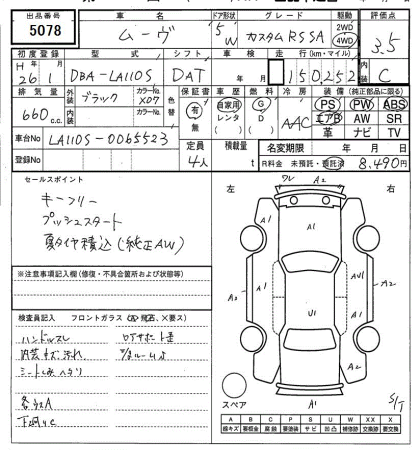 出品番号 車名 ドア形状 グレード 駆動 評価点
5078 ムーヴ 5 W カスタムRS SA 2WD 4WD 3.5
初度登録 型式 シフト 車検 走行(km・マイル) 内装
H 26年 1月 DBA-LA110S DAT 年 月 150,252 C
排気量 外装 ブラック カラーNo. X07 色替 保証書 車歴 燃料 冷房 装備(純正部品に限る)
660 c.c. 内装 カラーNo. 有 無 自家用 レンタ G D AAC PS PW ABS
エアB AW SR
革 ナビ TV
車台No LA110S-0065523 定員 積載量 名変期限 年 月 日
登録No 4人 t R料金 未預託・預託済 8,490円
セールスポイント
キーフリー
プッシュスタート
夏タイヤ積込(純正AW)
※注意事項記入欄(修復・不具合箇所および状態等)
検査員記入 フロントガラス
ハンドルスレ
内装キズ汚れ
シートしみヘタリ
各キズA
左 右
A2
A1
A1
A1
A2
A1
A2
U1
A1
A2
スペア
A1
S/T
A B C P S U W X XX
線キズ 要板金 腐蝕 要塗装 サビ 凹凸 補修跡 要交換 交換済